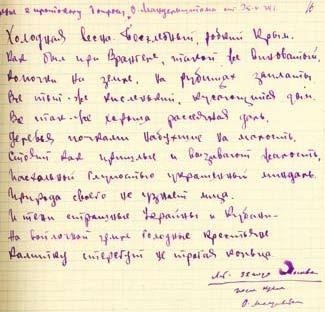 к протоколу допроса О. Мандельштама от
Холодная весна. Бесхлебный, робкий Крым.
Как был при Врангеле, такой же виноватый,
Колючки на земле, на рубищах заплаты
Все тот-же кисленький, кусающийся дым.
Все так-же хороша рассеянная даль,
Деревья почками набухшие на малость,
Стоят как пришлые и вызывает жалость,
Пасхальной глупостью украшенный миндаль.
Природа своего не узнает лица,
И тени страшные Украйны и Кубани —
На войлочной земле голодные крестьяне
Калитку стерегут не трогая кольца.
33 Москва
после Крыма
О. Мандельштам